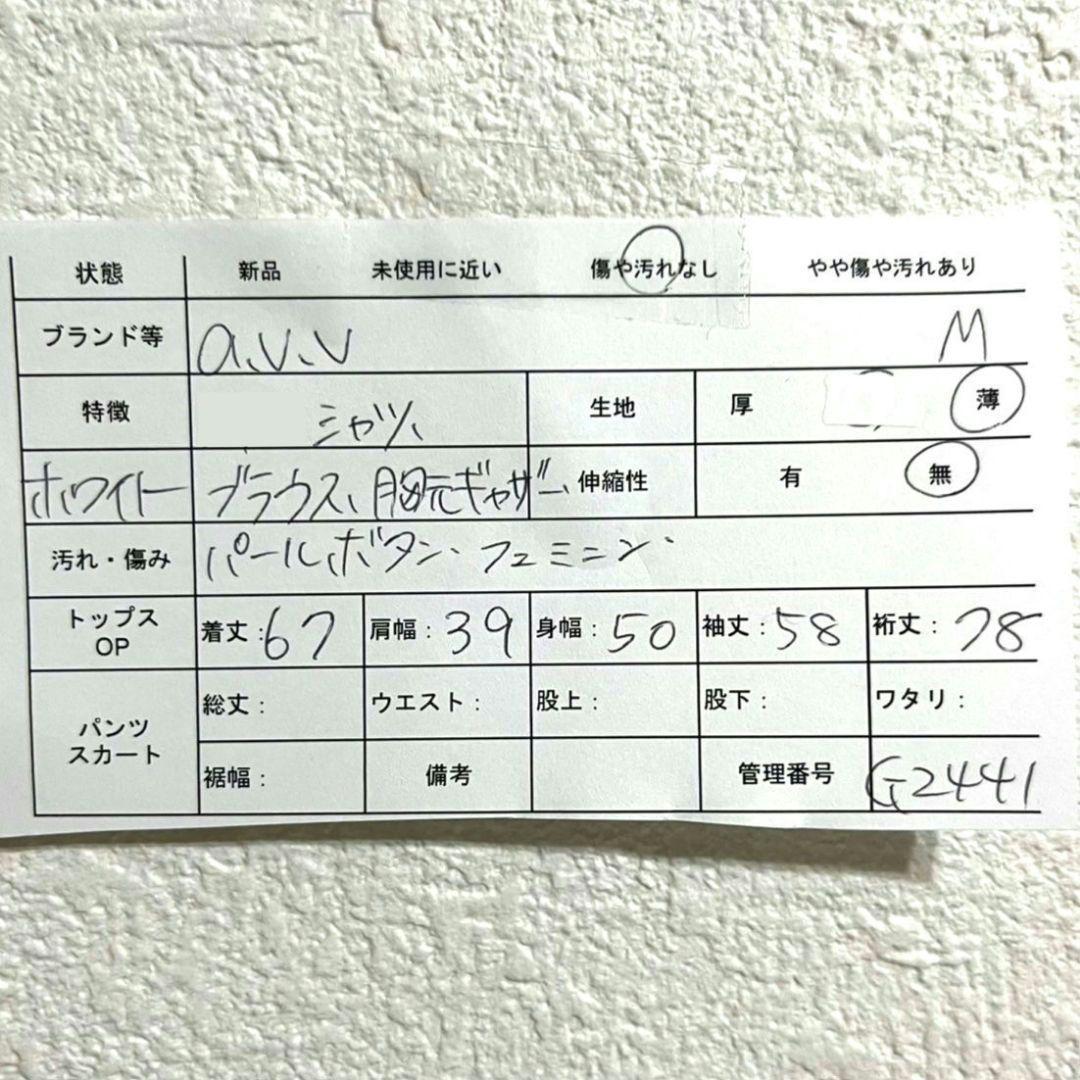 状態 新品 未使用に近い 傷や汚れなし やや傷や汚れあり
ブランド等 a.v.v M
特徴 シャツ、 生地 厚 薄
ホワイト ブラウス、胸元ギャザー、 伸縮性 有 無
汚れ・傷み パールボタン、フェミニン、
トップス OP 着丈:67 肩幅:39 身幅:50 袖丈:58 裄丈:78
パンツ スカート 総丈: ウエスト: 股上: 股下: ワタリ:
裾幅: 備考 管理番号 G2441